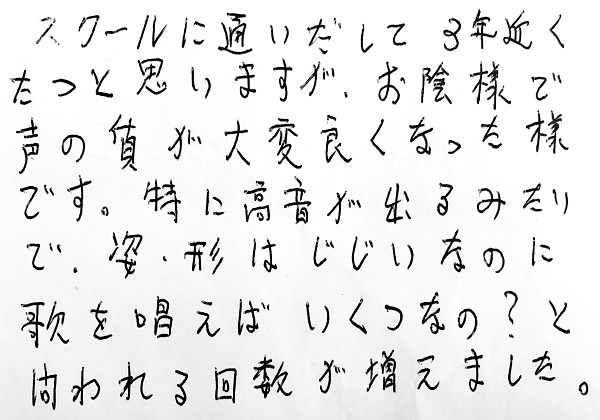 スクールに通いだして3年近く
たつと思いますが、お陰様で
声の質が大変良くなった様
です。特に高音が出るみたい
で、姿・形はじじいなのに
歌を唱えば いくつなの?と
問われる回数が増えました。